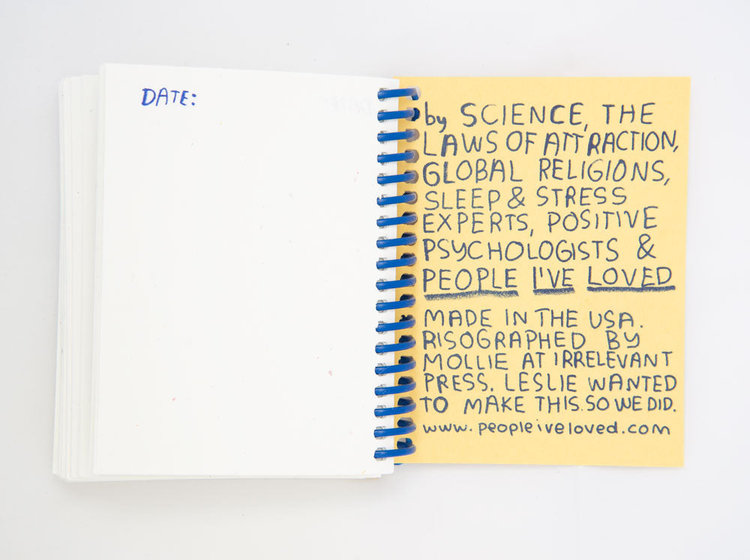 DATE:
by SCIENCE, THE
LAWS OF ATTRACTION,
GLOBAL RELIGIONS,
SLEEP & STRESS
EXPERTS, POSITIVE
PSYCHOLOGISTS &
PEOPLE I'VE LOVED
MADE IN THE USA.
RISOGRAPHED BY
MOLLIE AT IRRELEVANT
PRESS. LESLIE WANTED
TO MAKE THIS. SO WE DID.
www.peopleiveloved.com